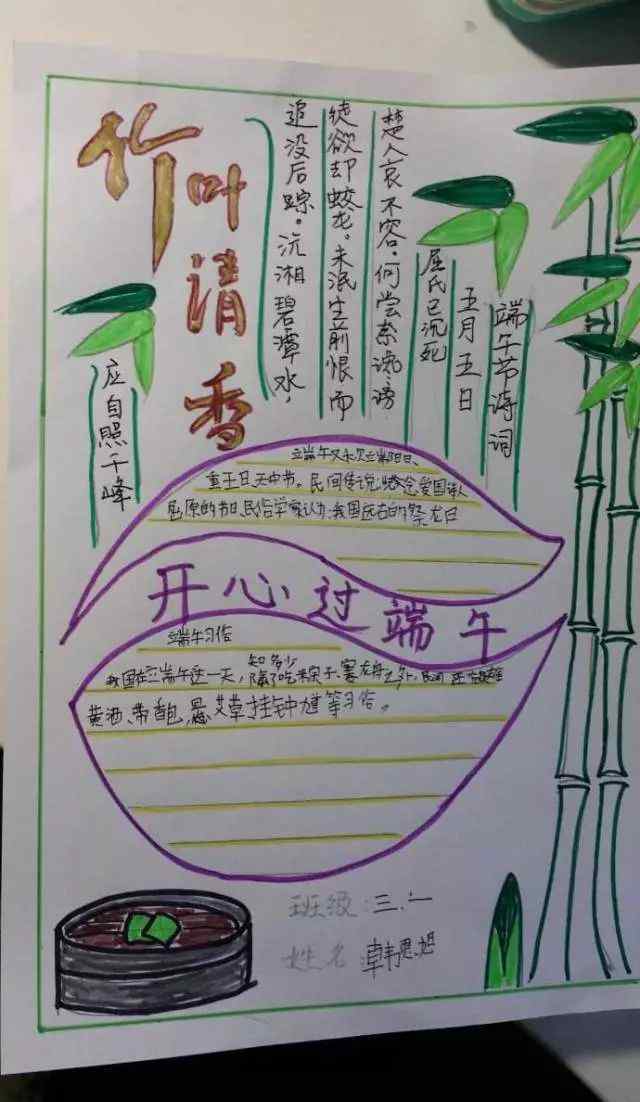 竹叶清香
端午节诗词
五月五日
屈氏已沉死
楚人哀不容。何尝奈谗谤
徒欲却蛟龙。未泯生前恨而
追没后踪。沅湘碧潭水,
应自照千峰
端午又称端阳日、
重五日、天中节。民间传说纪念爱国诗人
屈原的节日、民俗学家认为我国远古的祭龙日
开心过端午
端午习俗
知多少
我国在端午这一天,除了吃粽子、赛龙舟之外,民间还有雄
黄酒、带香包、悬艾草挂钟馗等习俗。
班级:三.一
姓名 韩